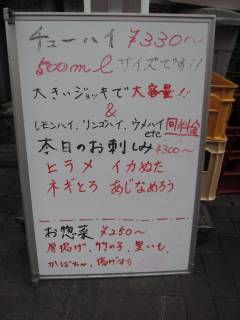 チューハイ ¥330〜
500ml サイズです!!
大きいジョッキで大容量!!
&
レモンハイ、リンゴハイ、ウメハイ
etc 同料金
本日のお刺しみ ¥300〜
ヒラメ イカぬた
ネギとろ あじなめろう
お惣菜 ¥250〜
厚揚げ、竹の子、里いも、
かぼちゃ、揚げなす